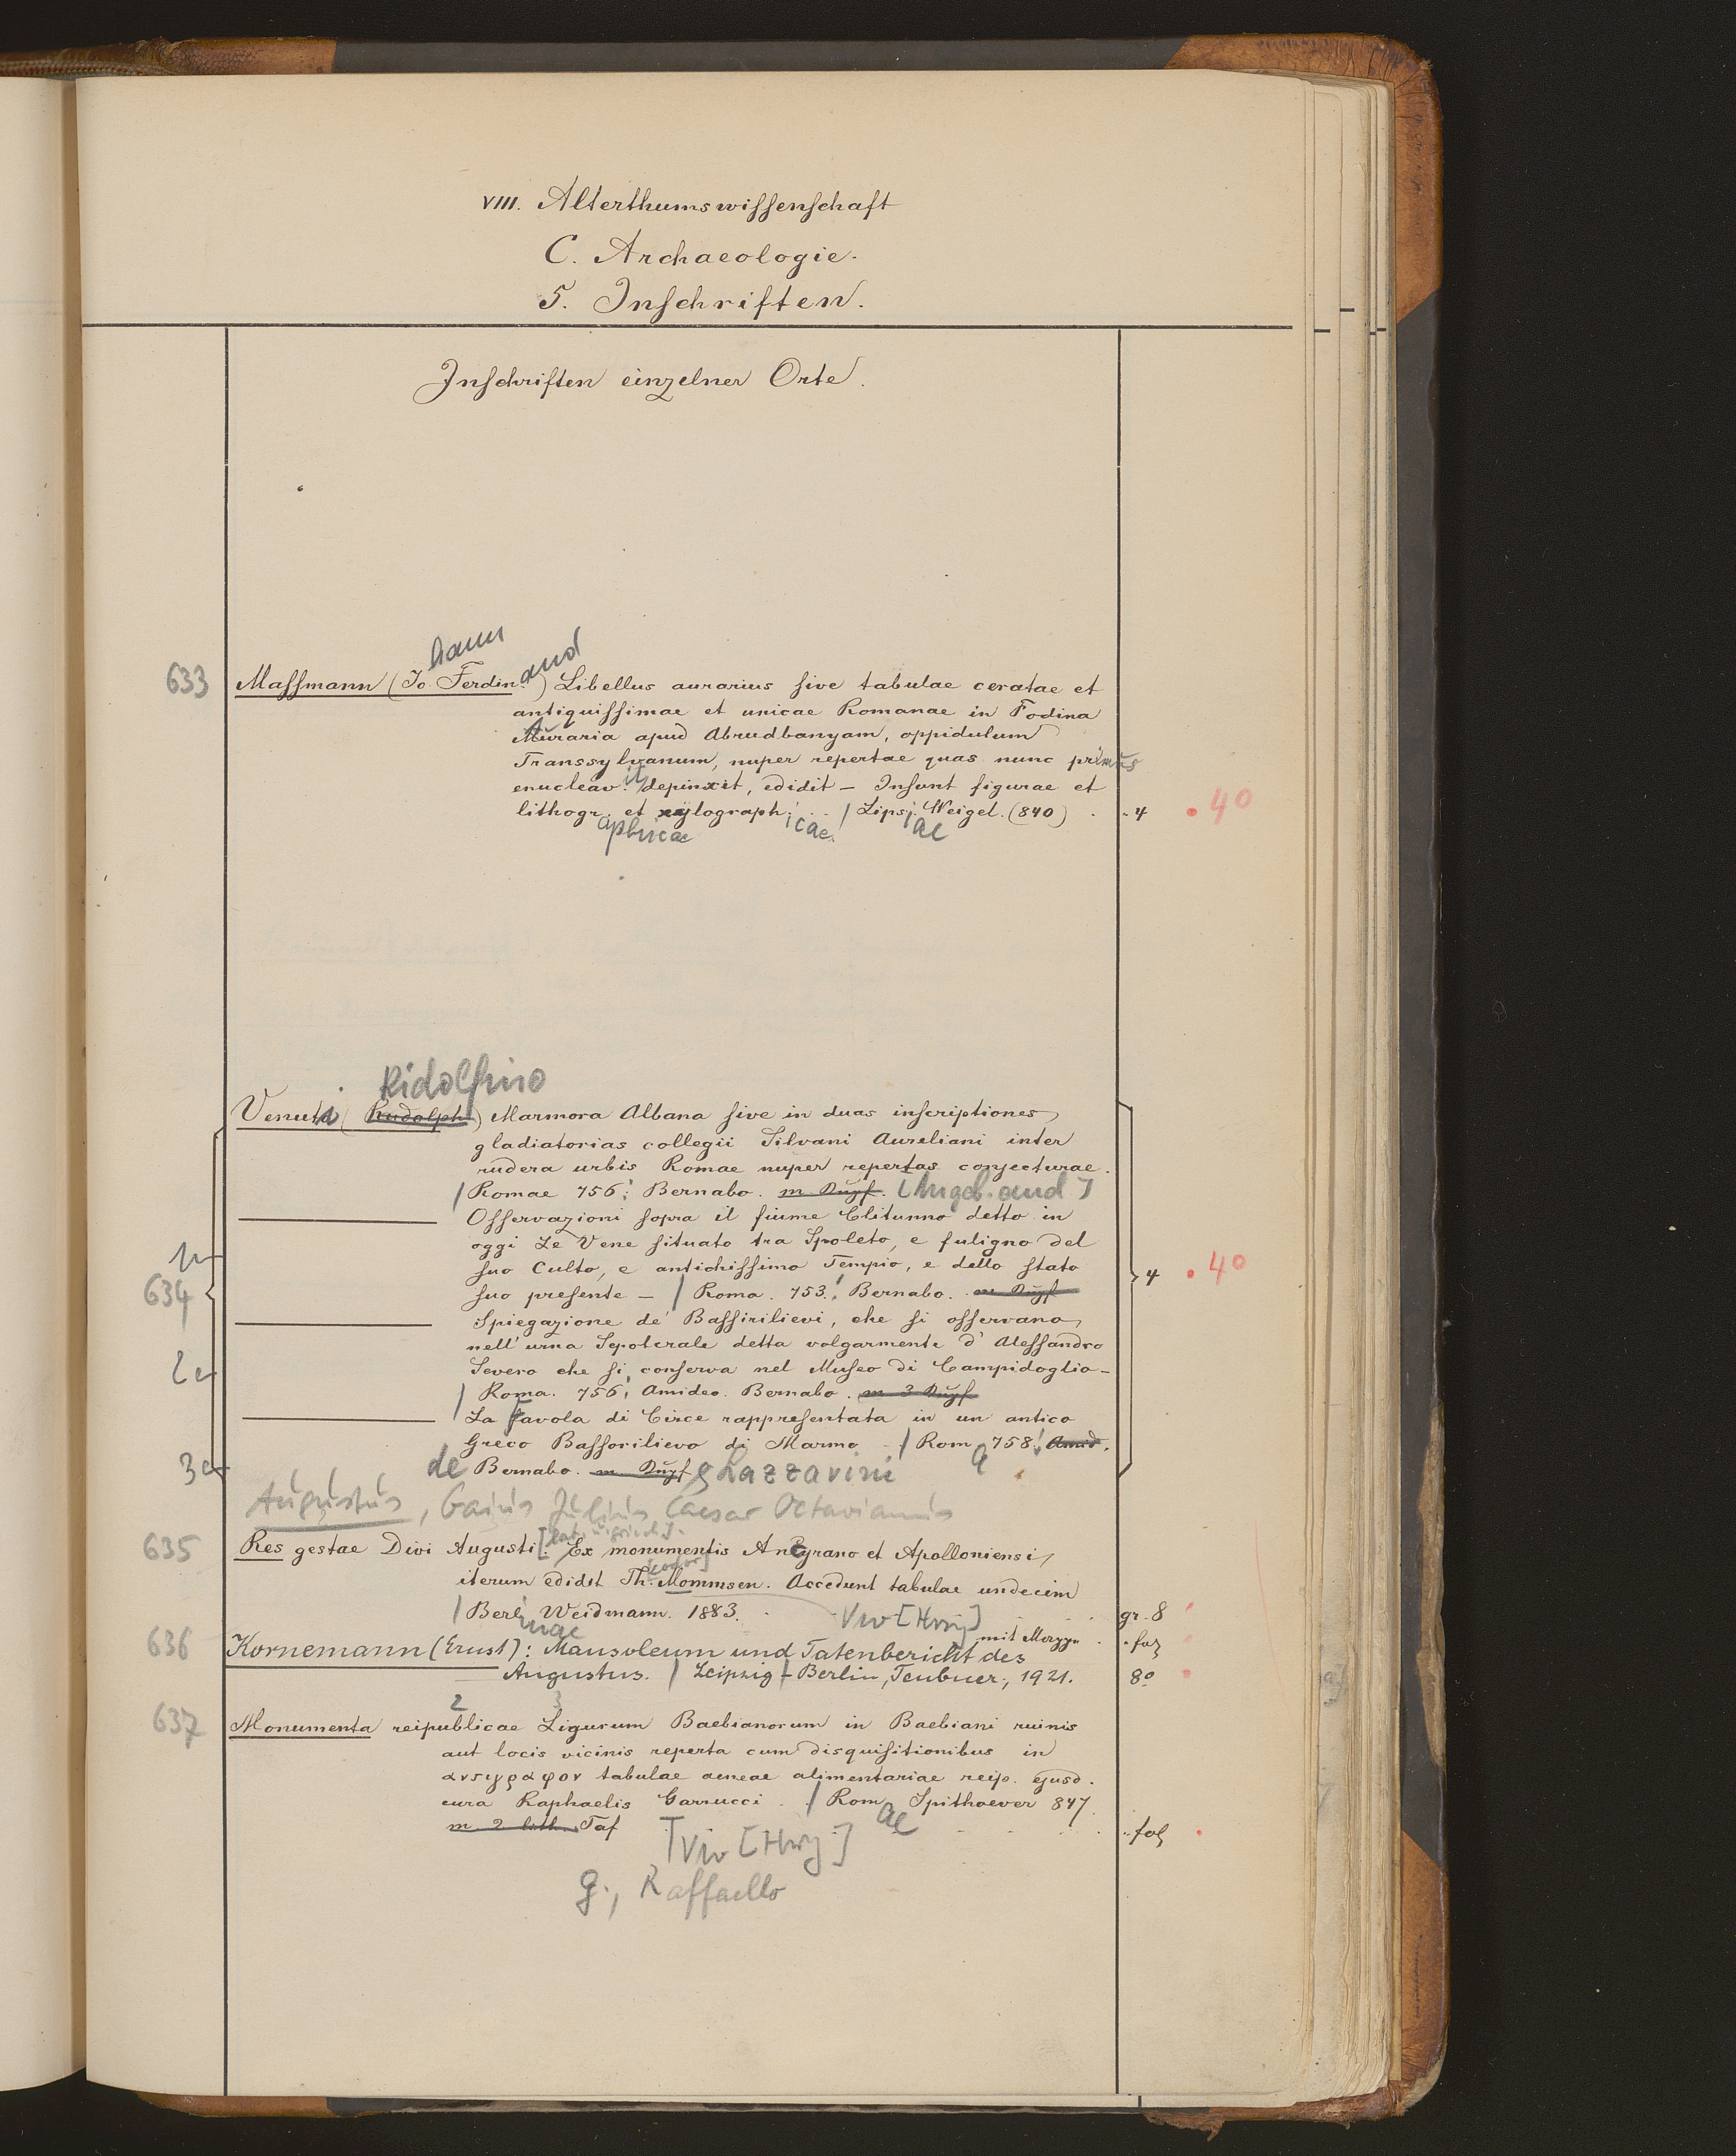 VIII. Alterthumswissenschaft
C. Archaeologie.
5. Inschriften.
Inschriften einzelner Orte.
hann and
633 Massmann (Jo. Ferdin.) Libellus aurarius sive tabulae ceratae et
antiquissimae et unicae Romanae in Fodina
Auraria apud Abrudbanyam, oppidulum
Transsylvanum, nuper repertae quas nunc primus
enucleav. it, depinxit, edidit — Insunt figurae et
lithogr. et xylograph. / Lips. Weigel. (840) 4 . 40
aphicae icae. iae
Ridolfino
Venuti (Rudolph) Marmora Albana sive in duas inscriptiones
gladiatorias collegii Silvani Aureliani inter
rudera urbis Romae nuper repertas conjecturae.
/ Romae 756. Bernabo. m. Kupf. [Angeb. and]
Osservazioni sopra il fiume Clitunno detto in
oggi Le Vene situato tra Spoleto, e fuligno del
suo Culto, e antichissimo Tempio, e dello stato
634 suo presente — / Roma. 753. Bernabo. m. Kupf 4 . 40
Spiegazione de' Bassirilievi, che si osservano
nell' urna Sepolcrale detta volgarmente d' Alessandro
Severo che si conserva nel Museo di Campidoglio —
/ Roma. 756. Amideo. Bernabo. m 3 Kupf
La favola di Circe rappresentata in un antico
Greco Bassorilievo di Marmo — / Rom a 758. Amid.
de Bernabo. m. Kupf & Lazzarini
Augustus, Gaius Julius Caesar Octavianus
[lat. u. griech.].
635 Res gestae Divi Augusti. Ex monumentis Ancyrano et Apolloniensi
[eodor]
iterum edidit Th. Mommsen. Accedunt tabulae undecim
/ Berl. Weidmann. 1883. gr. 8
inae Vw [Hrsg] mit fol
636 Kornemann (Ernst): Mausoleum und Tatenbericht des
Augustus. / Leipzig - Berlin, Teubner, 1921. 8°
2 3
637 Monumenta reipublicae Ligurum Baebianorum in Baebiani ruinis
aut locis vicinis reperta cum disquisitionibus in
αντιγραφον tabulae aeneae alimentariae reip. ejusd.
cura Raphaelis Garrucci . / Rom ae Spithoever 847
m. 2 lith. Taf fol
Vw [Hrsg]
G., Raffaello